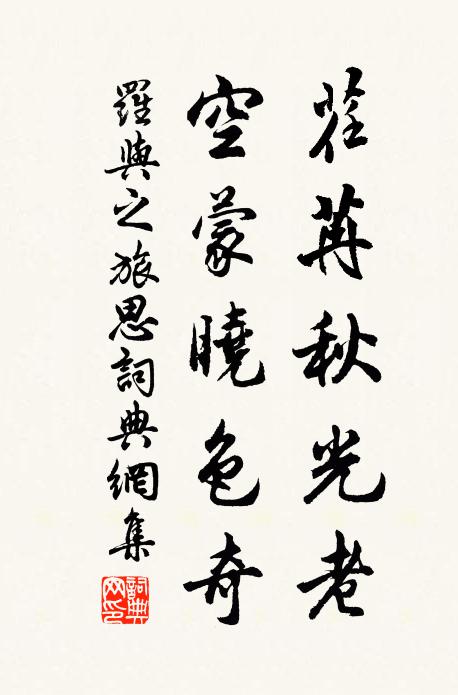 荏苒秋光老
空蒙曉色奇
羅與之旅思詞典網集
詞典網印